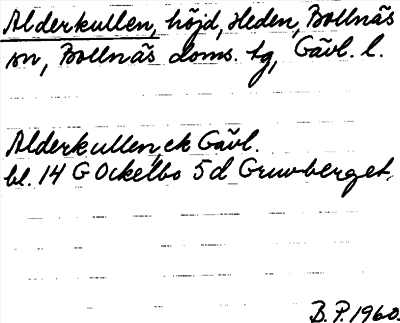 Alderkullen, höjd, Heden, Bollnäs
sn, Bollnäs doms. tg, Gävl. l.
Alderkullen, ek Gävl.
bl. 14 G Ockelbo 5d Gruvberget.
B.P. 1960.